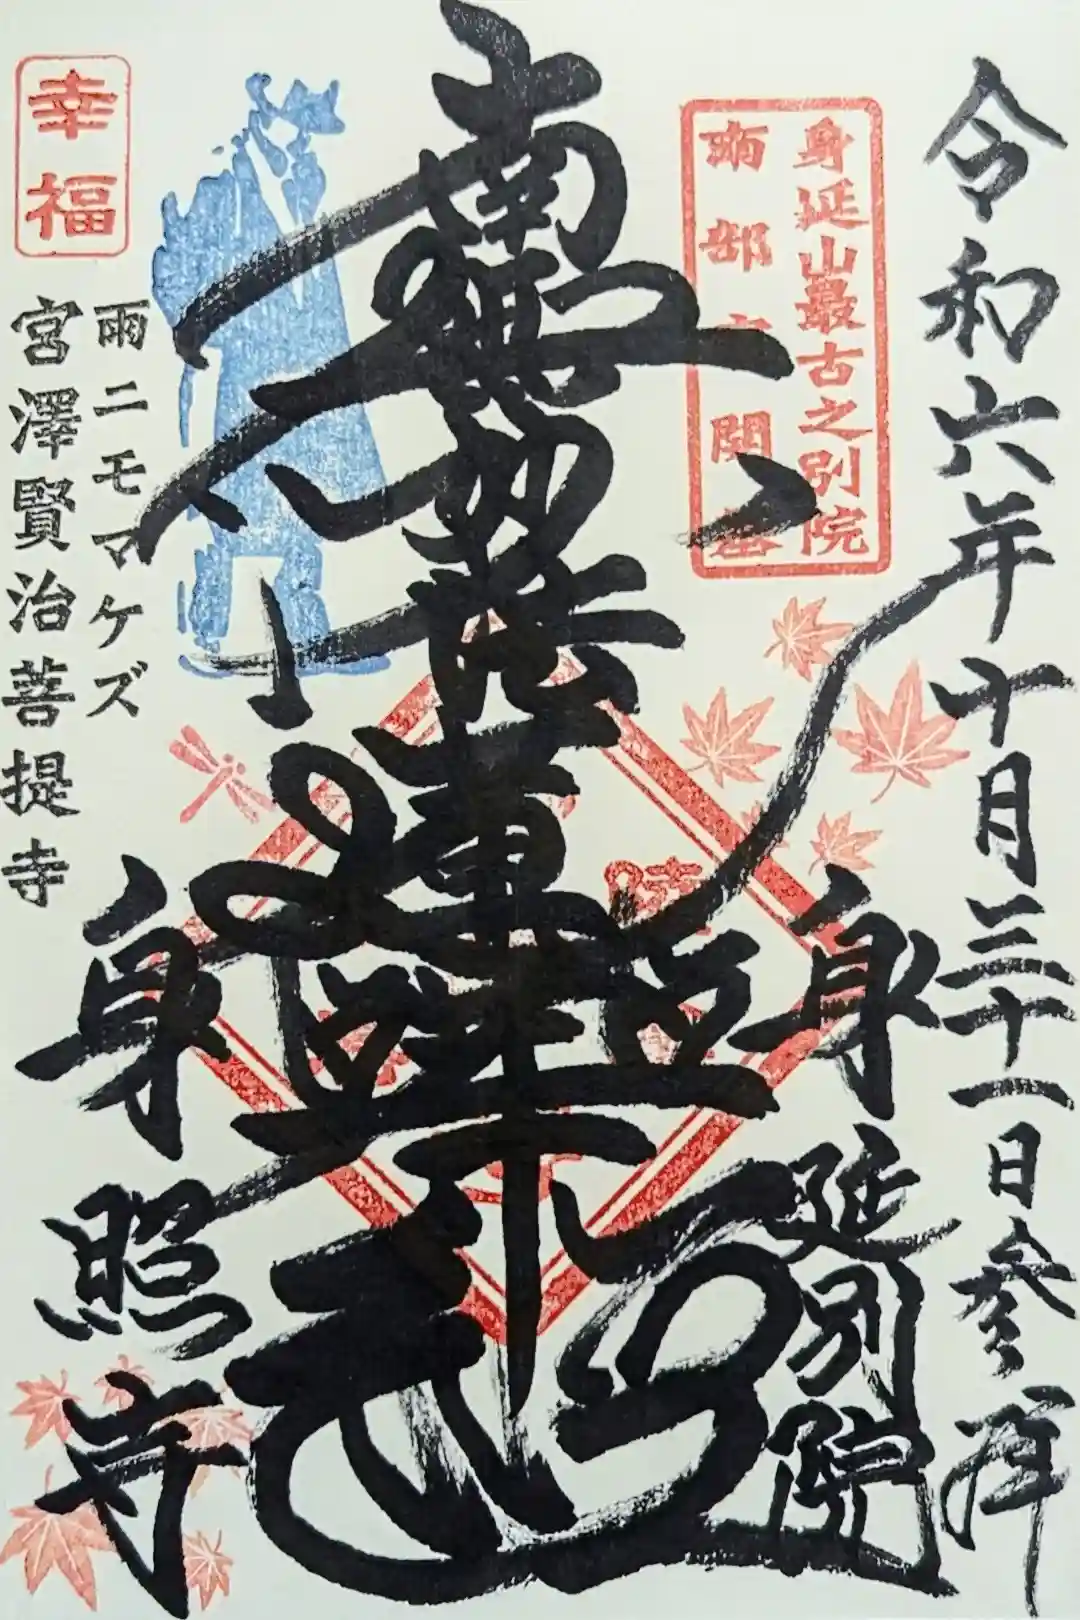 令和六年十月三十一日参拝
身延山最古之別院
南部
開基
身延別院
南無妙法蓮華経
幸福
雨ニモマケズ
宮澤賢治菩提寺
身照寺